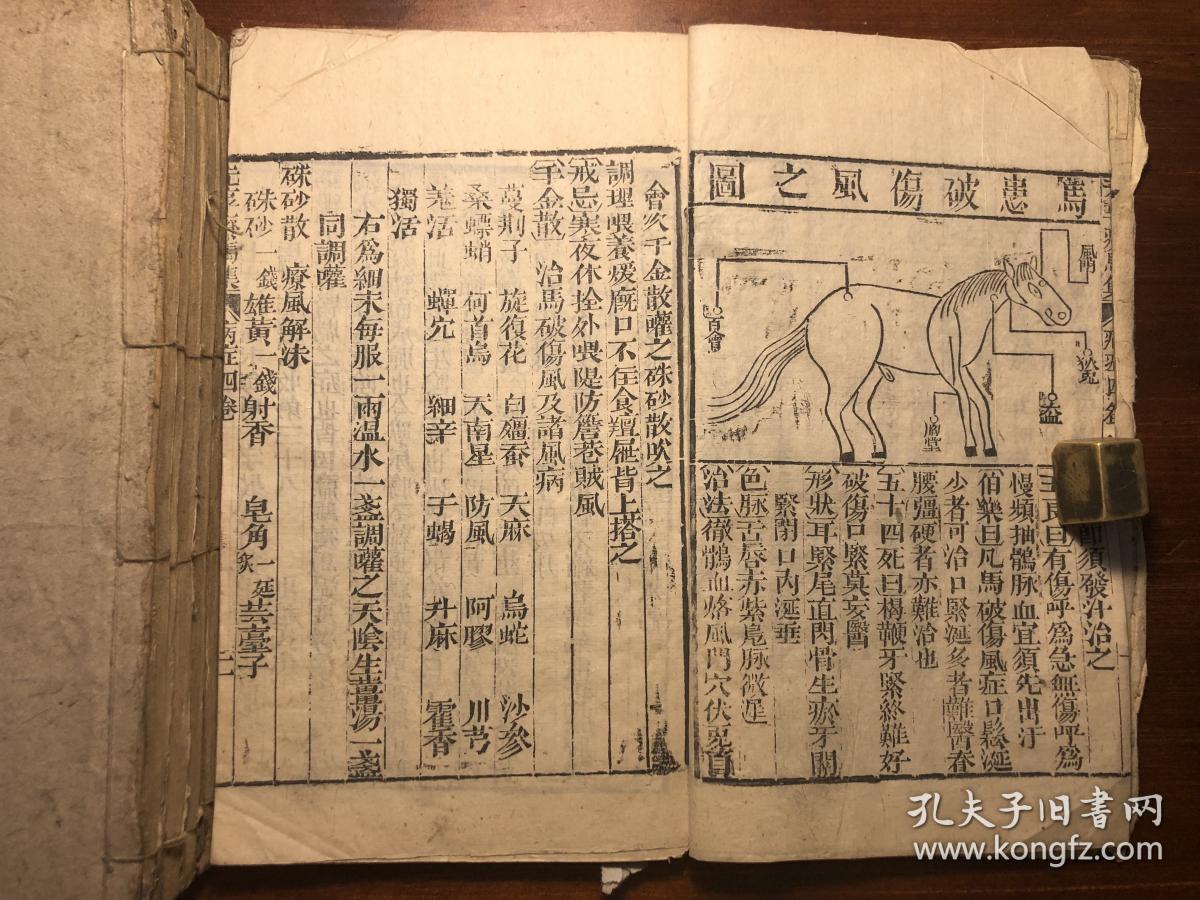 馬患破傷風之圖
百會
風門
伏兎
胸堂
即須發汗治之
王良曰有傷呼爲急無傷呼爲
慢頻抽鶻脉血宜須先出汗
伯樂曰凡馬破傷風症口鬆涎
少者可治口緊涎多者難醫脊
腰彊硬者亦難治也
五十四死曰榾鞭牙緊終難好
破傷口緊莫妄醫
形狀耳緊尾直閃骨生瘀牙關
緊閉口內涎垂
色脉舌唇赤紫鳧脉微遲
治法徹鶻血烙風門穴伏兎百
會次千金散灌之硃砂散吹之
調理喂養煖廄口不住食羶屜背上搭之
戒忌寒夜休拴外喂隄防簷巷賊風
千金散 治馬破傷風及諸風病
蔓荆子 旋復花 白殭蚕 天麻 烏蛇 沙參
桑螵蛸 何首烏 天南星 防風 阿膠 川芎
羌活 蟬壳 細辛 干蝎 升麻 霍香
獨活
右爲細末每服一兩温水一盞調灌之天陰生薑湯一盞
同調灌
硃砂散 療風解㳈
硃砂一錢雄黃一錢射香 皂角一𨑳炙芸臺子
病症四卷
二
孔夫子旧书网
www.kongfz.com